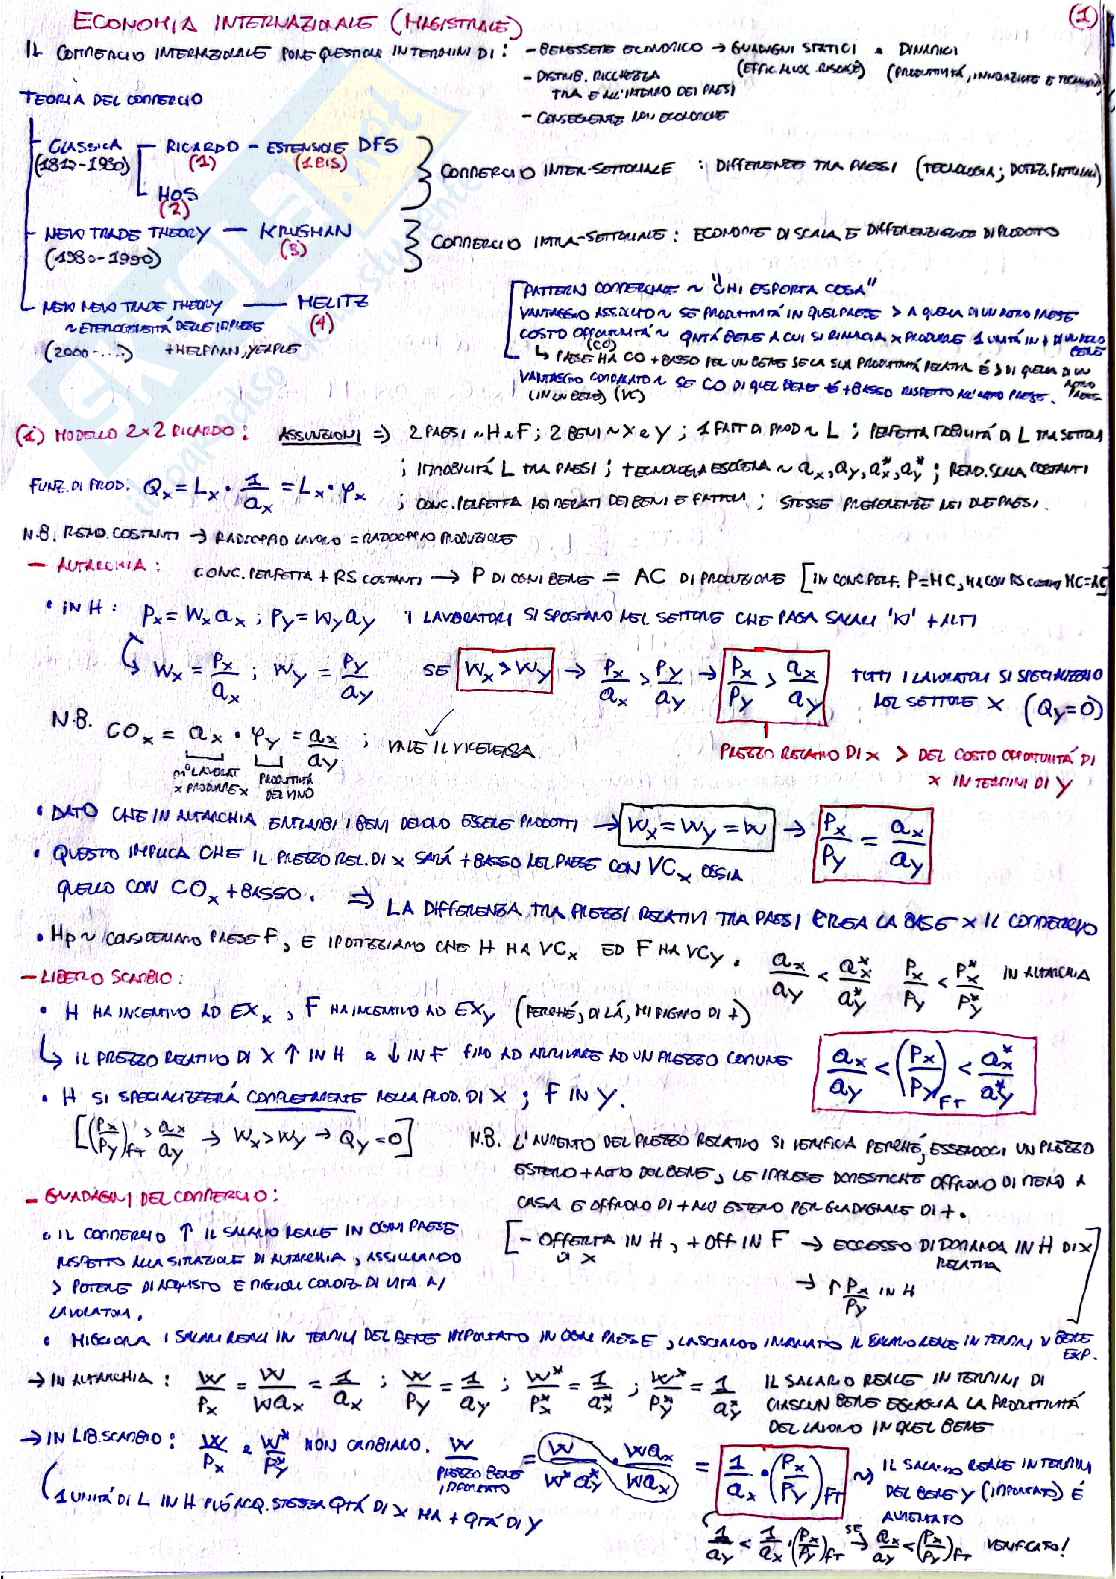 ECONOMIA INTERNAZIONALE (MAGISTRALE)
(1)
IL COMMERCIO INTERNAZIONALE PONE QUESTIONI IN TERMINI DI : - BENESSERE ECONOMICO → GUADAGNI STATICI e DINAMICI
(EFFIC. ALLOC. RISORSE) (PRODUTTIVITÁ, INNOVAZIONE E TECNOLOGIA)
- DISTRIB. RICCHEZZA
TRA E ALL'INTERNO DEI PAESI
- CONSEGUENZE NON ECONOMICHE
TEORIA DEL COMMERCIO
- CLASSICA - RICARDO - ESTENSIONE DFS
(1817-1980) (1) (1BIS)
COMMERCIO INTER-SETTORIALE : DIFFERENZE TRA PAESI (TECNOLOGIA; DOTAZ. FATTORIALI)
HOS
(2)
- NEW TRADE THEORY - KRUGMAN
(1980-1990) (3)
COMMERCIO INTRA-SETTORIALE : ECONOMIE DI SCALA E DIFFERENZIAZIONE DI PRODOTTO
- NEW NEW TRADE THEORY - MELITZ
~ ETEROGENEITÁ DELLE IMPRESE (4)
(2000-....) + HELPMAN, YEAPLE
PATTERN COMMERCIALE ~ "CHI ESPORTA COSA"
VANTAGGIO ASSOLUTO ~ SE PRODUTTIVITÁ IN QUEL PAESE > A QUELLA DI UN ALTRO PAESE
COSTO OPPORTUNITÁ ~ QNTÁ BENE A CUI SI RINUNCIA x PRODURRE 1 UNITÁ IN + DI UN ALTRO BENE
(CO)
↳ PAESE HA CO + BASSO PER UN BENE SE LA SUA PRODUTTIVITÁ RELATIVA É > DI QUELLA DI UN ALTRO PAESE
VANTAGGIO COMPARATO ~ SE CO DI QUEL BENE É + BASSO RISPETTO ALL'ALTRO PAESE.
(IN UN BENE) (VC)
(1) MODELLO 2x2 RICARDO : ASSUNZIONI => 2 PAESI ~ H e F ; 2 BENI ~ X e Y ; 1 FATT DI PROD ~ L ; PERFETTA MOBILITÁ DI L TRA SETTORI
; IMMOBILITÁ L TRA PAESI ; TECNOLOGIA ESOGENA ~ ax, ay, ax*, ay* ; REND. SCALA COSTANTI
FUNZ. DI PROD. Qx = Lx · 1/ax = Lx · φx ; CONC. PERFETTA NEI MERCATI DEI BENI E FATTORI ; STESSE PREFERENZE NEI DUE PAESI.
N.B. REND. COSTANTI → RADDOPPIO LAVORO = RADDOPPIO PRODUZIONE
- AUTARCHIA : CONC. PERFETTA + RS COSTANTI → P DI OGNI BENE = AC DI PRODUZIONE [IN CONC PERF. P=MC, MA CON RS COSTANTI MC=AC]
• IN H : Px = Wx ax ; Py = Wy ay I LAVORATORI SI SPOSTANO NEL SETTORE CHE PAGA SALARI 'W' + ALTI
↳ Wx = Px/ax ; Wy = Py/ay SE Wx > Wy → Px/ax > Py/ay → Px/Py > ax/ay TUTTI I LAVORATORI SI SPECIALIZZANO
NEL SETTORE X (Qy=0)
N.B. COx = ax · φy = ax/ay ; VALE IL VICEVERSA
n° LAVORAT x PRODURRE x PRODUTTIVITÁ DEL VINO
PREZZO RELATIVO DI X > DEL COSTO OPPORTUNITÁ DI
X IN TERMINI DI Y
• DATO CHE IN AUTARCHIA ENTRAMBI I BENI DEVONO ESSERE PRODOTTI → Wx = Wy = W → Px/Py = ax/ay
• QUESTO IMPLICA CHE IL PREZZO REL. DI X SARÁ + BASSO NEL PAESE CON VCx OSSIA
QUELLO CON COx + BASSO. => LA DIFFERENZA TRA PREZZI RELATIVI TRA PAESI CREA LA BASE x IL COMMERCIO
• Hp ~ CONSIDERIAMO PAESE F, E IPOTIZZIAMO CHE H HA VCx ED F HA VCy. ax/ay < ax*/ay* Px/Py < Px*/Py* IN AUTARCHIA
- LIBERO SCAMBIO :
• H HA INCENTIVO AD EXx, F HA INCENTIVO AD EXy (PERCHÉ, DI LÁ, MI PAGANO DI +)
↳ IL PREZZO RELATIVO DI X ↑ IN H e ↓ IN F FINO AD ARRIVARE AD UN PREZZO COMUNE ax/ay < (Px/Py)FT < ax*/ay*
• H SI SPECIALIZZERÁ COMPLETAMENTE NELLA PROD. DI X ; F IN Y.
[(Px/Py)FT > ax/ay → Wx > Wy → Qy = 0]
N.B. L'AUMENTO DEL PREZZO RELATIVO SI VERIFICA PERCHÉ, ESSENDOCI UN PREZZO
ESTERO + ALTO DEL BENE, LE IMPRESE DOMESTICHE OFFRONO DI MENO A
CASA E OFFRONO DI + ALL'ESTERO PER GUADAGNARE DI +.
[- OFFERTA IN H, + OFF IN F → ECCESSO DI DOMANDA IN H DI X
DI X RELATIVA
→ ↑ Px/Py IN H]
- GUADAGNI DEL COMMERCIO :
• IL COMMERCIO ↑ IL SALARIO REALE IN OGNI PAESE
RISPETTO ALLA SITUAZIONE DI AUTARCHIA, ASSICURANDO
> POTERE DI ACQUISTO E MIGLIORI CONDIZ. DI VITA AI
LAVORATORI.
• MIGLIORA I SALARI REALI IN TERMINI DEL BENE IMPORTATO IN OGNI PAESE, LASCIANDO INVARIATO IL SALARIO REALE IN TERMINI BENE EXP.
→ IN AUTARCHIA : W/Px = W/Wax = 1/ax ; W/Py = 1/ay ; W*/Px* = 1/ax* ; W*/Py* = 1/ay* IL SALARIO REALE IN TERMINI DI
CIASCUN BENE EGUAGLIA LA PRODUTTIVITÁ
DEL LAVORO IN QUEL BENE
→ IN LIB. SCAMBIO : W/Px e W*/Py* NON CAMBIANO. W/PREZZO BENE IMPORTATO = W/W*ay* · Wax/Wax = 1/ax · (Px/Py)FT ~> IL SALARIO REALE IN TERMINI
DEL BENE Y (IMPORTATO) É
AUMENTATO
1 UNITÁ DI L IN H PUÓ ACQ. STESSA QTÁ DI X MA + QTÁ DI Y
1/ay < 1/ax · (Px/Py)FT SE → ax/ay < (Px/Py)FT VERIFICATO!